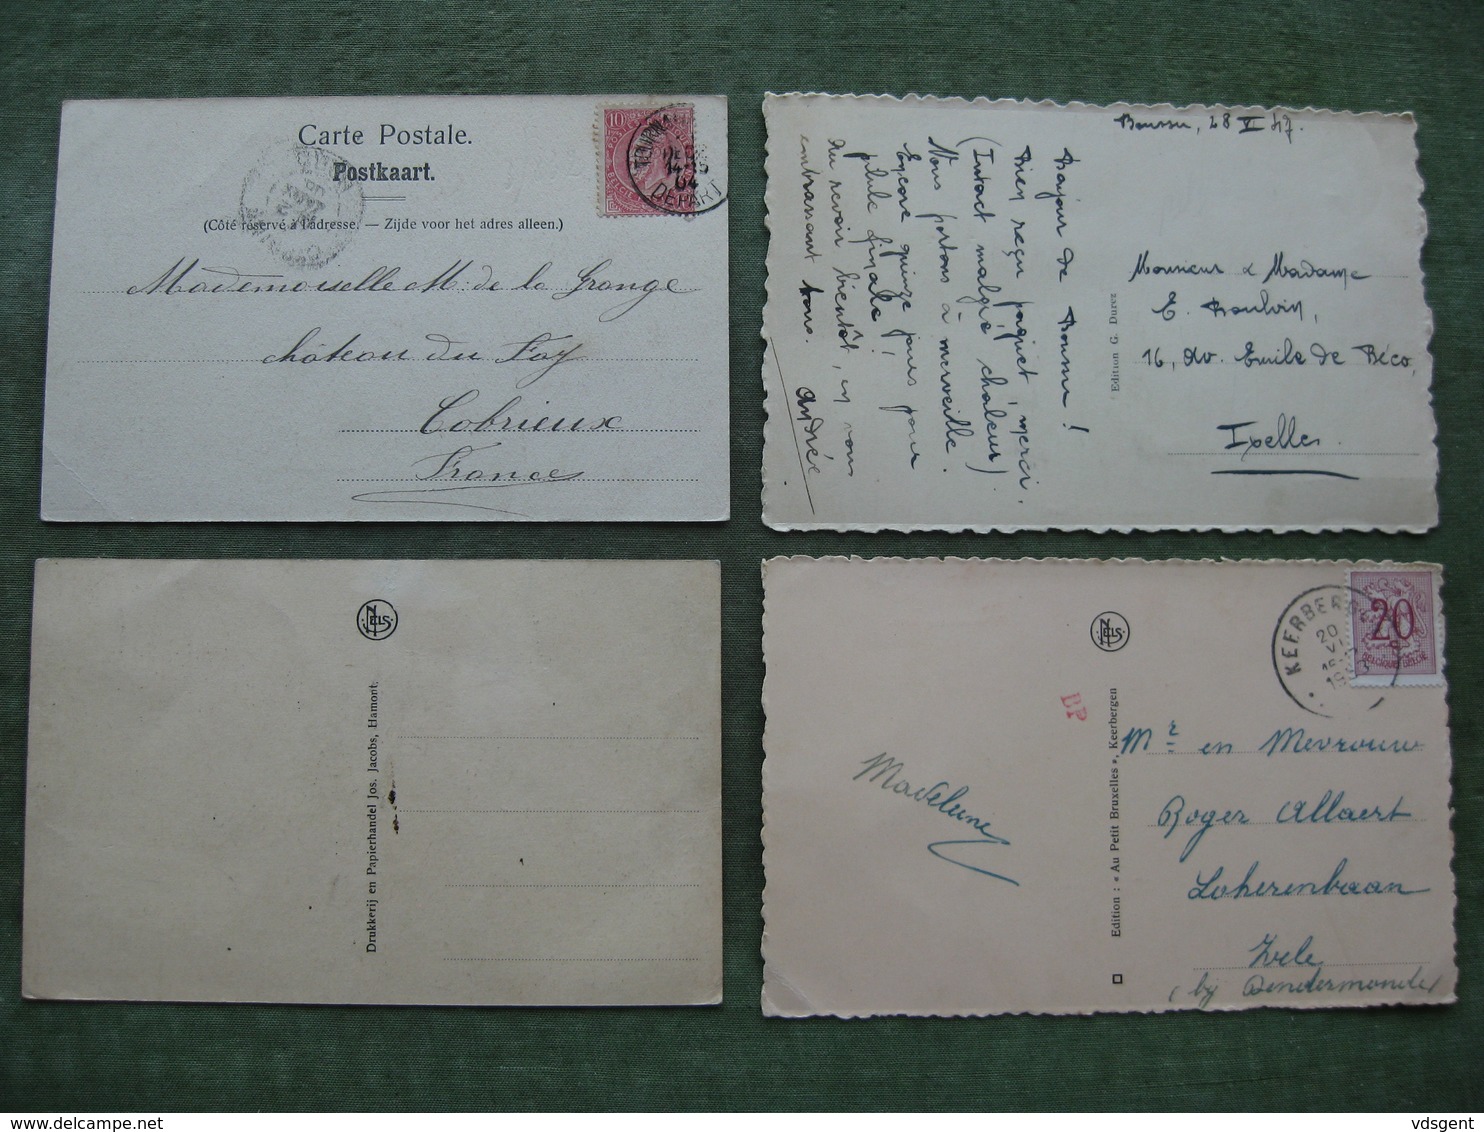 Carte Postale.
Postkaart.
(Côté réservé à l'adresse. — Zijde voor het adres alleen.)
10
TOURNAI
14-15
04
DEPART
Mademoiselle M. de la Grange
château du Fay
Cobrieux
France
Boussu, 28 VI 47.
Bonjour de Boussu !
Bien reçu paquet, merci,
(Intact malgré chaleur)
Nous portons à merveille.
Encore quinze jours pour
plule finale !
Au revoir bientôt, en vous
embrassant tous.
Andrée
Edition G. Durez
Monsieur & Madame
E. Boulvin,
16, Av. Emile de Béco,
Ixelles.
NELS
Drukkerij en Papierhandel Jos. Jacobs, Hamont.
NELS
KEERBERGEN
20
VI
20
BELGIQUE BELGIE
BP
Madeleine
Edition : « Au Petit Bruxelles », Keerbergen
Mr en Mevrouw
Roger Allaert
Lokerenbaan
Zele
(bij Dendermonde)
www.delcampe.net
vdsgent